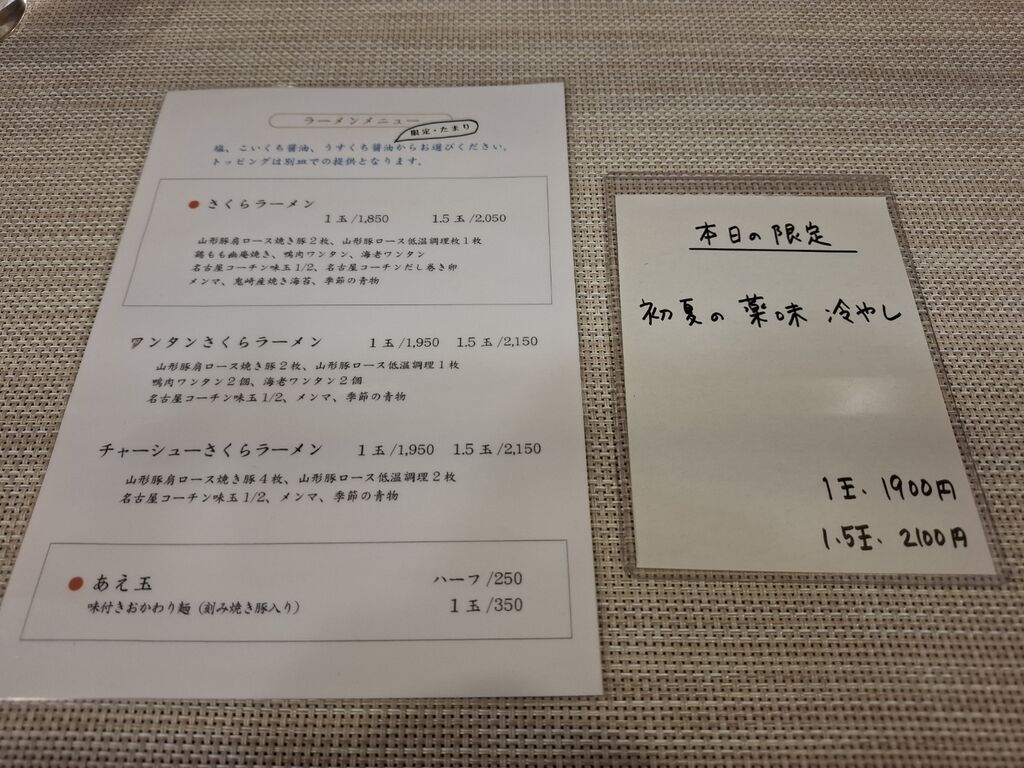 ラーメンメニュー
限定・たまり
塩、こいくち醤油、うすくち醤油からお選びください。
トッピングは別皿での提供となります。
● さくらラーメン
1玉/1,850 1.5玉/2,050
山形豚肩ロース焼き豚2枚、山形豚ロース低温調理枚1枚
鶏もも幽庵焼き、鴨肉ワンタン、海老ワンタン
名古屋コーチン味玉1/2、名古屋コーチンだし巻き卵
メンマ、鬼崎産焼き海苔、季節の青物
ワンタンさくらラーメン 1玉/1,950 1.5玉/2,150
山形豚肩ロース焼き豚2枚、山形豚ロース低温調理1枚
鴨肉ワンタン2個、海老ワンタン2個
名古屋コーチン味玉1/2、メンマ、季節の青物
チャーシューさくらラーメン 1玉/1,950 1.5玉/2,150
山形豚肩ロース焼き豚4枚、山形豚ロース低温調理2枚
名古屋コーチン味玉1/2、メンマ、季節の青物
● あえ玉 ハーフ/250
味付きおかわり麺(刻み焼き豚入り) 1玉/350
本日の限定
初夏の薬味 冷やし
1玉、1900円
1.5玉、2100円